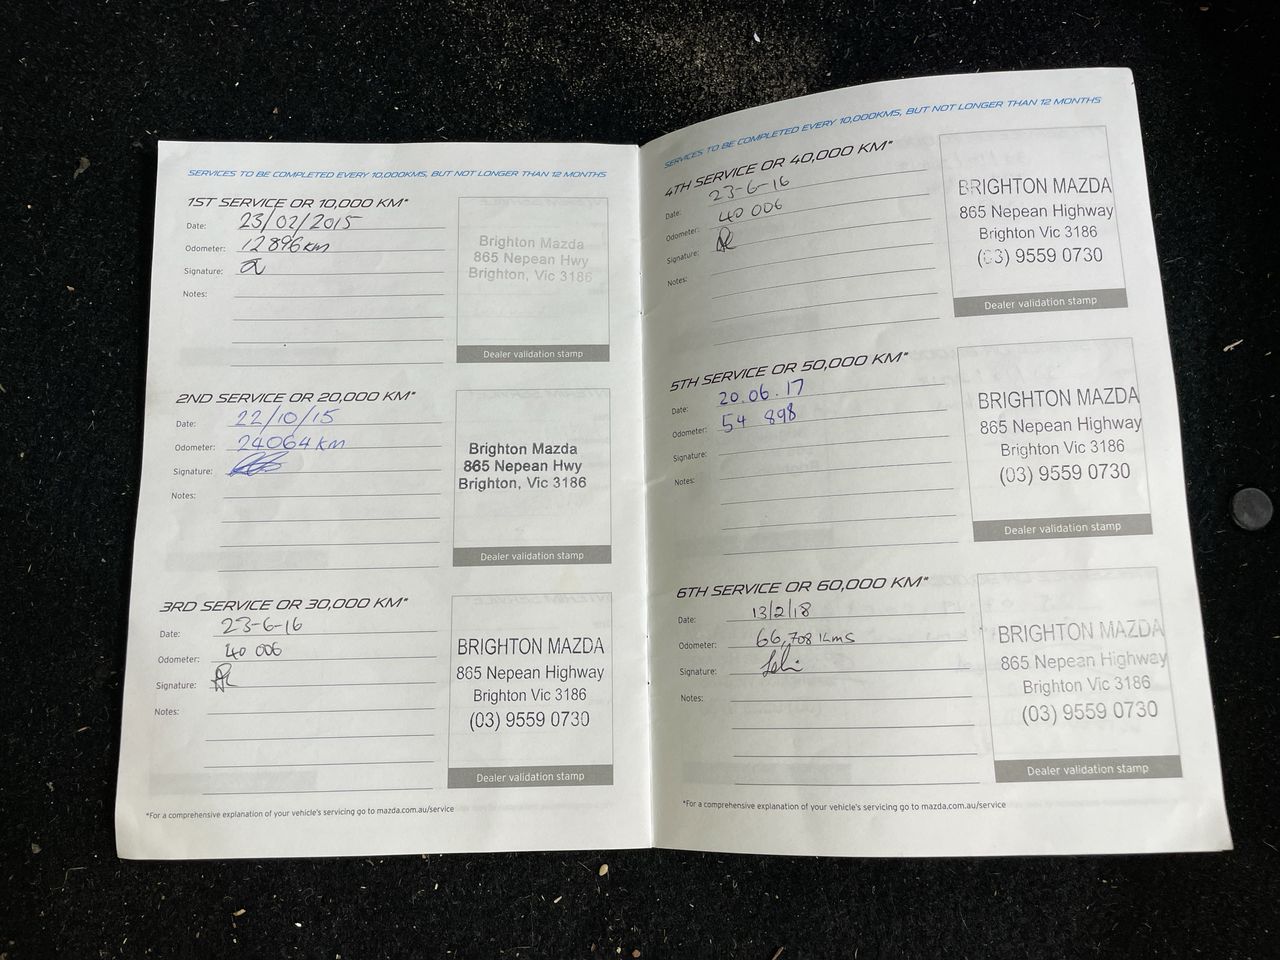 SERVICES TO BE COMPLETED EVERY 10,000KMS, BUT NOT LONGER THAN 12 MONTHS
1ST SERVICE OR 10,000 KM*
Date: 23/02/2015
Odometer: 12896km
Signature:
Notes:
Brighton Mazda
865 Nepean Hwy
Brighton, Vic 3186
Dealer validation stamp
2ND SERVICE OR 20,000 KM*
Date: 22/10/15
Odometer: 24064km
Signature:
Notes:
Brighton Mazda
865 Nepean Hwy
Brighton, Vic 3186
Dealer validation stamp
3RD SERVICE OR 30,000 KM*
Date: 23-6-16
Odometer: 40 006
Signature:
Notes:
BRIGHTON MAZDA
865 Nepean Highway
Brighton Vic 3186
(03) 9559 0730
Dealer validation stamp
*For a comprehensive explanation of your vehicle's servicing go to mazda.com.au/service
SERVICES TO BE COMPLETED EVERY 10,000KMS, BUT NOT LONGER THAN 12 MONTHS
4TH SERVICE OR 40,000 KM*
Date: 23-6-16
Odometer: 40 006
Signature:
Notes:
BRIGHTON MAZDA
865 Nepean Highway
Brighton Vic 3186
(03) 9559 0730
Dealer validation stamp
5TH SERVICE OR 50,000 KM*
Date: 20.06.17
Odometer: 54 898
Signature:
Notes:
BRIGHTON MAZDA
865 Nepean Highway
Brighton Vic 3186
(03) 9559 0730
Dealer validation stamp
6TH SERVICE OR 60,000 KM*
Date: 13/2/18
Odometer: 66,708 kms
Signature:
Notes:
BRIGHTON MAZDA
865 Nepean Highway
Brighton Vic 3186
(03) 9559 0730
Dealer validation stamp
*For a comprehensive explanation of your vehicle's servicing go to mazda.com.au/service